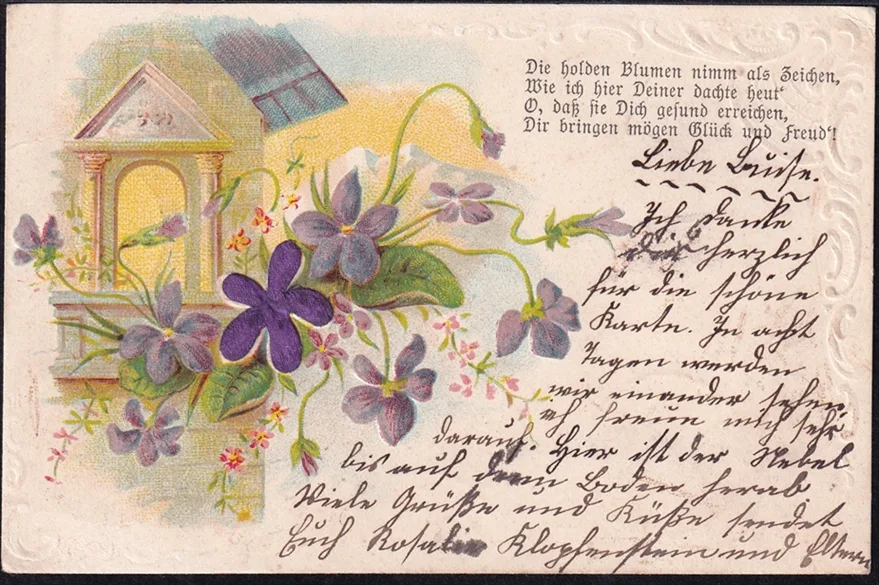 Die holden Blumen nimm als Zeichen,
Wie ich hier Deiner dachte heut'
O, daß sie Dich gesund erreichen,
Dir bringen mögen Glück und Freud'!
Liebe Luise.
Ich danke
dir herzlich
für die schöne
Karte. In acht
Tagen werden
wir einander sehen
ich freue mich sehr
darauf. Hier ist der Nebel
bis auf dem Boden herab
Viele Grüße und Küße sendet
Euch Rosalie Klopfenstein und Eltern